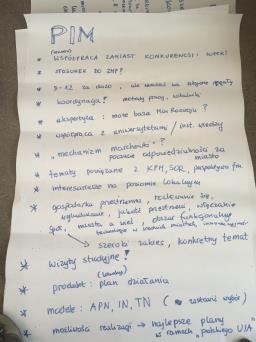 PIM
(nazwa)
* WSPÓŁPRACA ZAMIAST KONKURENCJI. SUPER!
* STOSUNEK DO ZMP?
* 9-12 za dużo, ale
* koordynacja? metody pracy, wskaźniki
* ekspertyza: może baza Min Rozwoju?
* współpraca z uniwersytetami / inst. wiedzy
* „mechanizm marchewki"?
poczucie odpowiedzialności za miasto
* tematy powiązane z KPM, SOR, perspektywa fin.
* interesariusze na poziomie lokalnym
* gospodarka przestrzenna, rozlewanie się,
wyludnianie, jakość przestrzeni, włączanie
społ., miasto a wieś, obszar funkcjonalny
technologie w średnich miastach,
→ szeroki zakres, konkretny temat
* wizyty studyjne?
* produkt: plan działania
* modele: APN, IN, TN ( zostawić wybór)
* możliwości realizacji → najlepsze plany
w ramach „polskiego UIA"